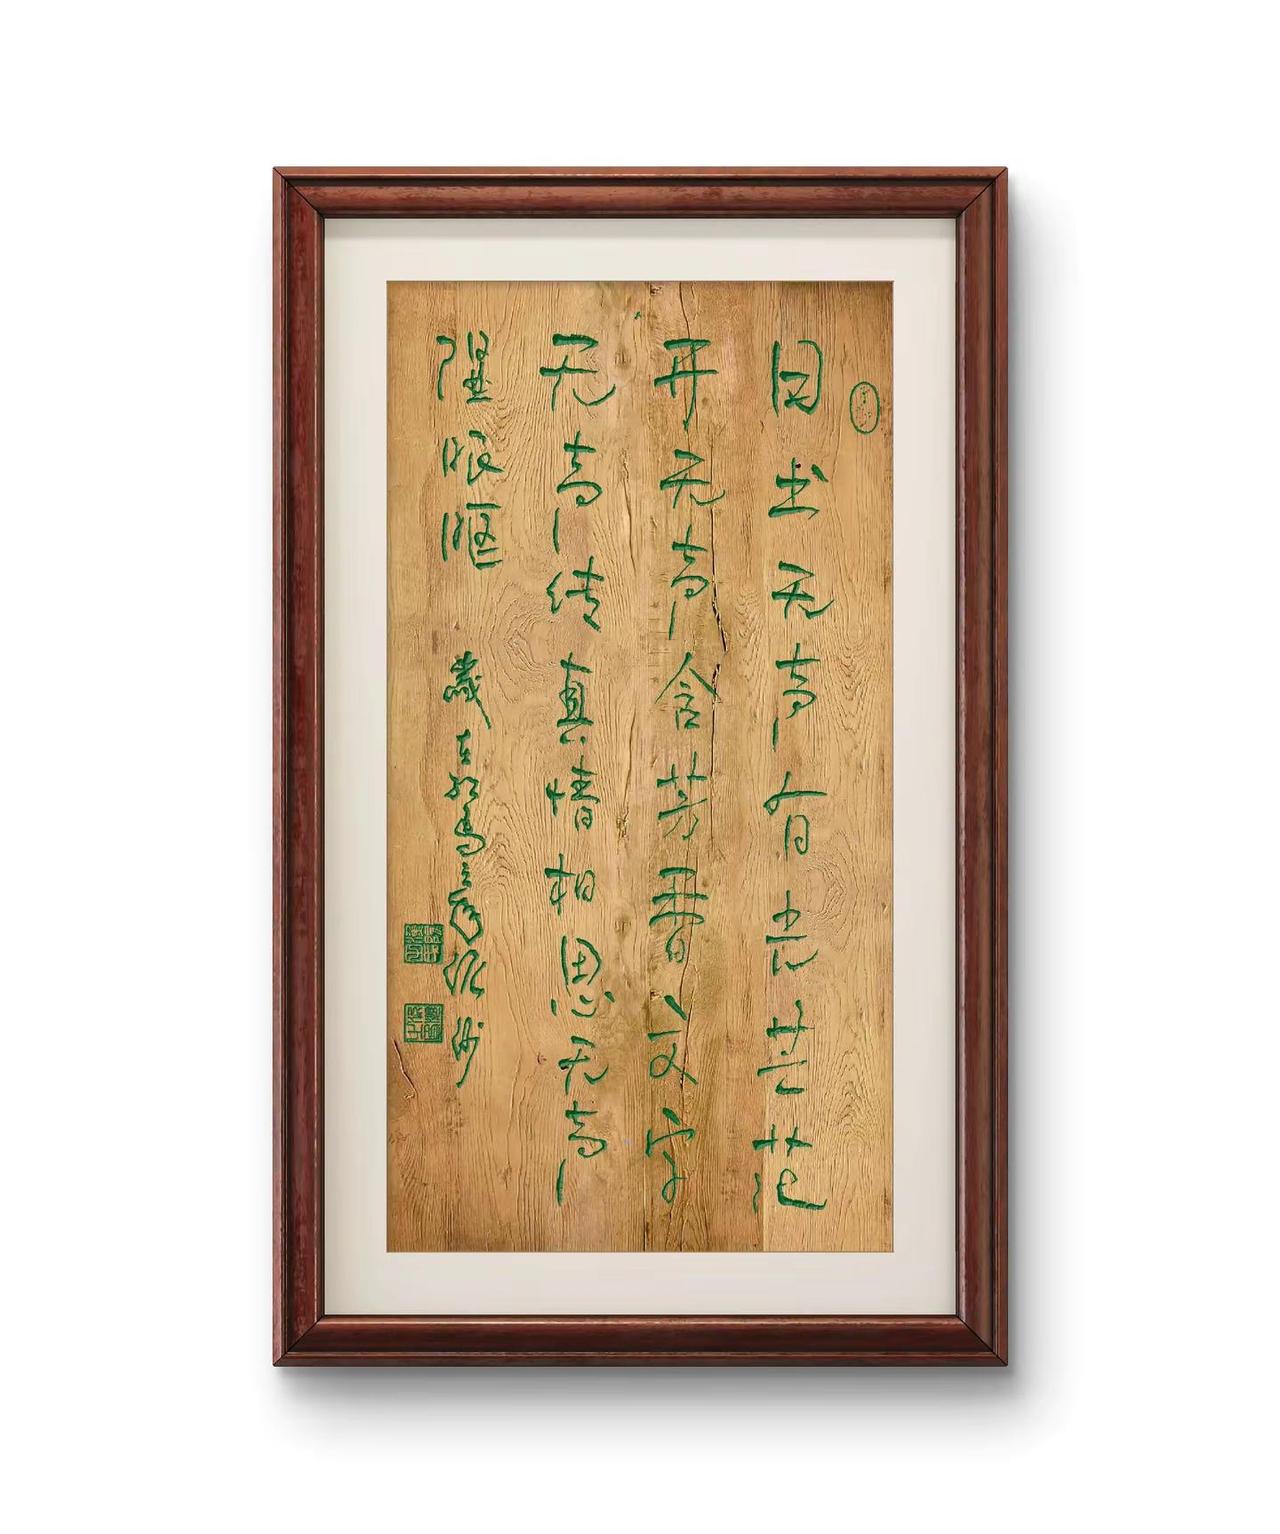 日出无声有光芒花
开无声含芳香文字
无声传真情相思无声
湿眼眶
歲在